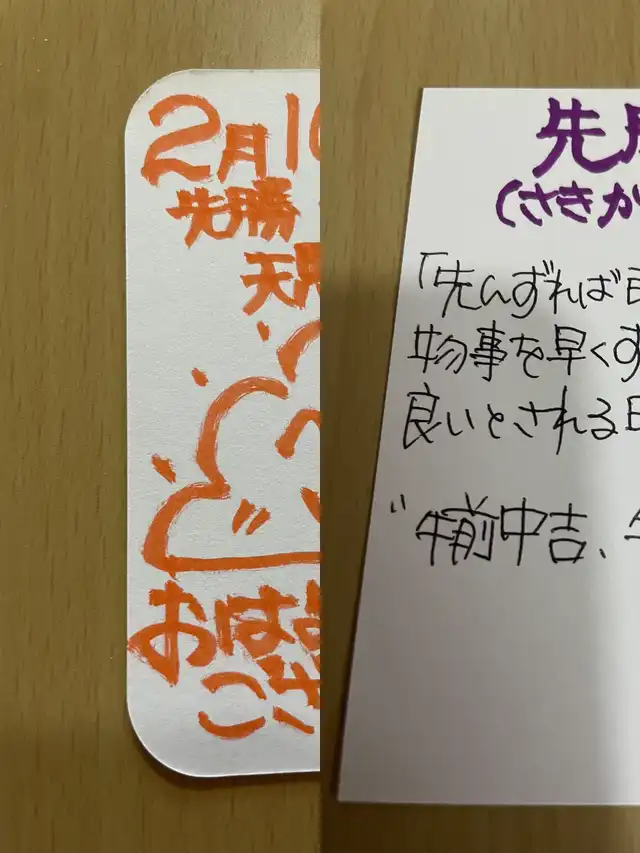 2月1
先勝
天
おは
ござ
先
(さきか
「先んずれば
物事を早くす
良いとされる
"午前中吉、